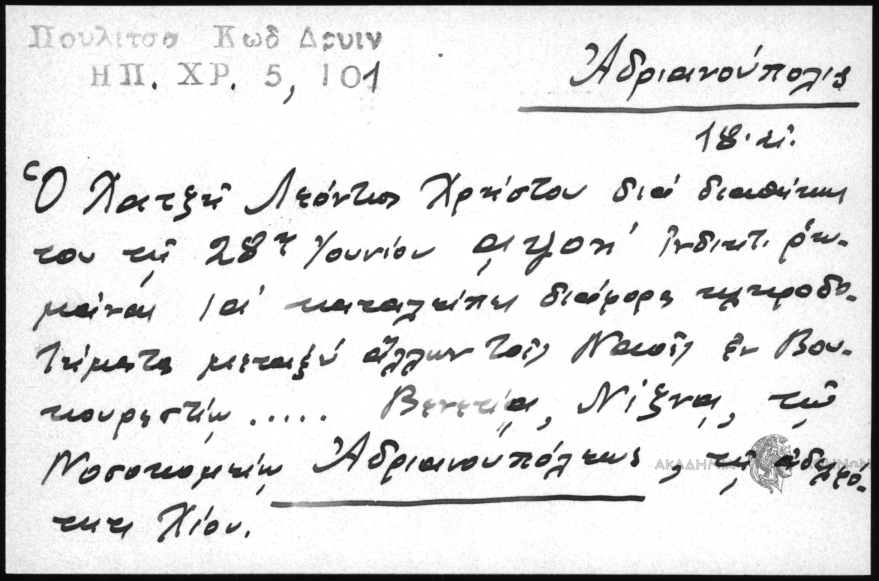 Πουλιτσα Κωδ Δρυιν
ΗΠ. ΧΡ. 5, 101
Ἀδριανούπολις
18. αἰ.
Ὁ Χατζῆ Λεόντιος Χρήστου διά διαθήκης
του τῇ 28η Ἰουνίου αψοη' ἰνδικτ. ῥω-
μαίναι ια' καταλείπει διάφορα κληροδο-
τήματα μεταξύ ἄλλων τοῖς Ναοῖς ἐν Βου-
κουρεστίῳ ..... Βενετίᾳ, Νίζνα, τῷ
Νοσοκομείῳ Ἀδριανουπόλεως, τῇ ἀδελφό-
τητι Χίου.
ΑΚΑΔΗΜΙΑ ΑΘΗΝΩΝ